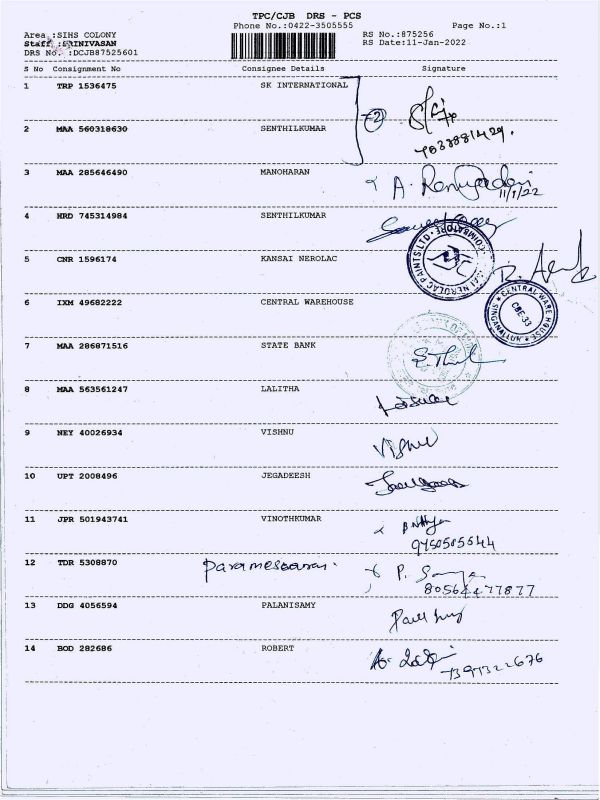 TPC/CJB DRS - PCS
Phone No.:0422-3505555 Page No.:1
Area :SIHS COLONY RS No.:875256
Staff :SRINIVASAN RS Date:11-Jan-2022
DRS No. :DCJB87525601
S No Consignment No Consignee Details Signature
1 TRP 1536475 SK INTERNATIONAL
2 MAA 560318630 SENTHILKUMAR
3 MAA 285646490 MANOHARAN
11/1/22
4 HRD 745314984 SENTHILKUMAR
5 CNR 1596174 KANSAI NEROLAC
NEROLAC PAINTS LTD. COIMBATORE
6 IXM 49682222 CENTRAL WAREHOUSE
CENTRAL WARE HOUSE
CBE-33
SINGANALLUR
7 MAA 286871516 STATE BANK
8 MAA 563561247 LALITHA
9 NEY 40026934 VISHNU
Vishnu
10 UPT 2008496 JEGADEESH
11 JPR 501943741 VINOTHKUMAR
9750505544
12 TDR 5308870
80564477877
13 DDG 4056594 PALANISAMY
14 BOD 282686 ROBERT
7397322676